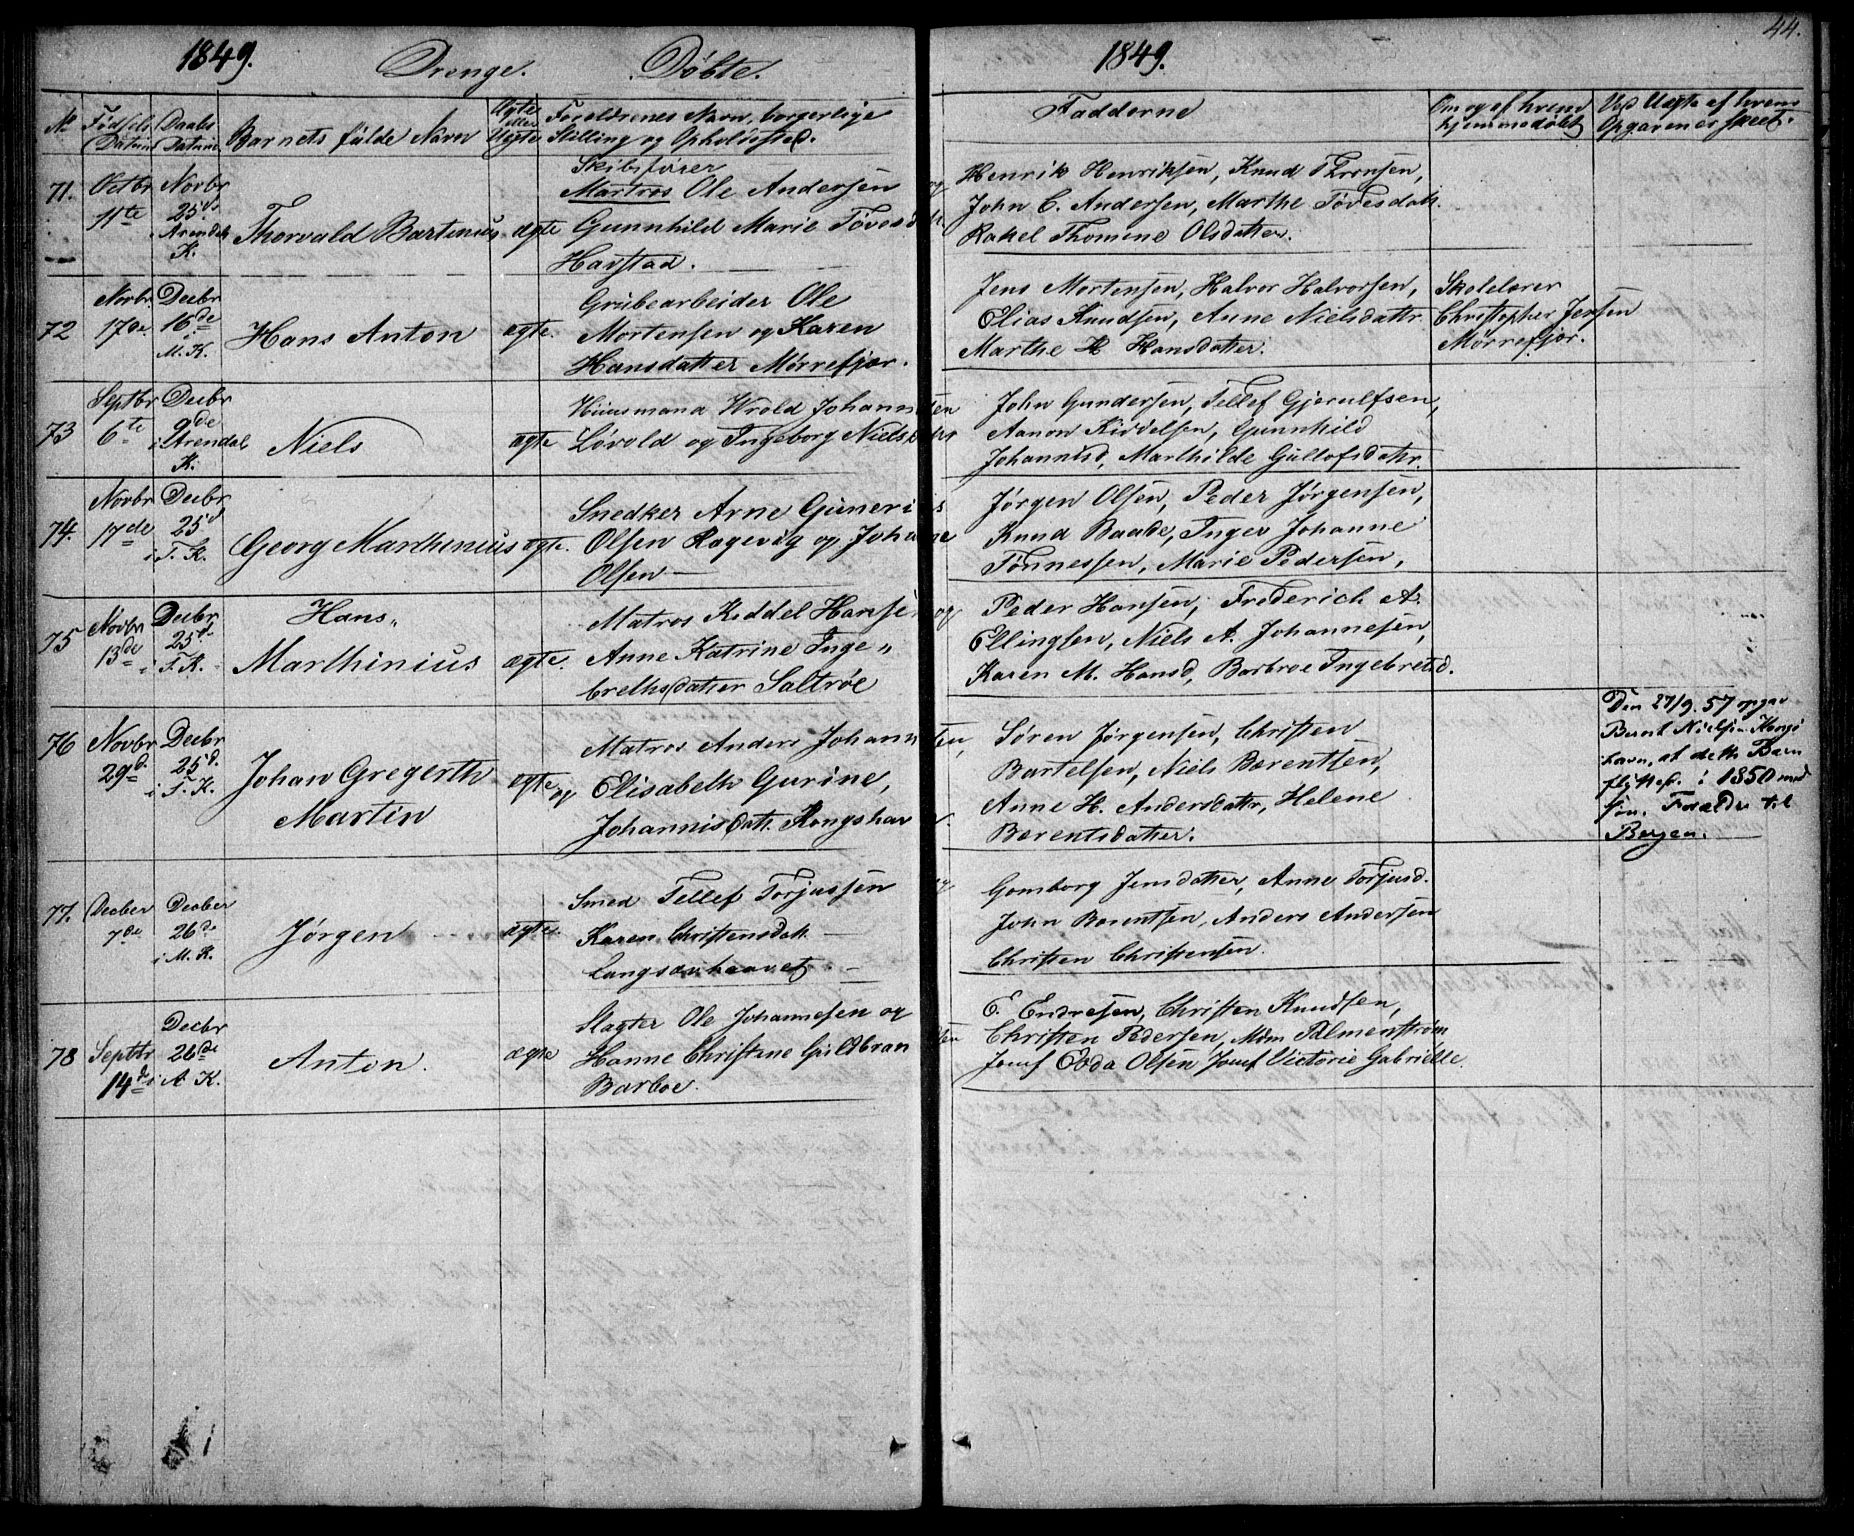 44.
1849. Drenge. Döbte. 1849.
No Fødsels Datum
Daabs Datum
Barnets fulde Navn
Ægte eller Uægte
Forældrenes Navn, borgerlige
Stilling og Opholdssted.
Fadderne
Om og af hvem
hjemmedøbt
Ved Uægte af hvem
Opgaven er skeet.
71. Octbr 11te
Norbr 25de i Arendals K.
Thorvald Bartinius
ægte
Skibsfører
Martros Ole Andersen og
Gunnhild Marie Tövesd
Havstad.
Henrik Henriksen, Knud
John C. Andersen, Marthe Tövesdatt.
Rakel Thomine Olsdatter.
72 Novbr. 17de
Decbr 16de i M. K.
Hans Anton
ægte.
Grubearbeider Ole
Mortensen og Karen
Hansdatter Mørrefjær.
Jens Mortensen, Halvor Halvorsen,
Elias Knudsen, Anne Nielsdattr
Marthe K Hansdatter.
Skolelærer
Christopher Jensen
Mørrefjær.
73 Septbr 6te
Decbr 9de i Arendal K.
Niels
ægte
Huusmand Wrold Johannsen
Løvold og Ingeborg Niels
John Gundersen, Tellef Gjerulfsen,
Aanon Kiddelsen, Gunnhild
Johannisd, Marthilde Gullofsdattr.
74. Novbr 17de
Decbr 25d i T. K.
Georg Marthinius
ægte.
Snedker Arne Guneri s
Olsen Ragevig og Johanne
Olsen
Jørgen Olsen, Peder Jørgensen,
Knud Baade, Inger Johanne
Tönnessen, Marie Pedersen,
75 Novbr 13de
Decbr 25d i T. K.
Hans
Marthinius
ægte.
Matros Kiddel Hansen og
Anne Katrine Inge"
brethsdatter Saltröe
Peder Hansen, Frederich A.
Ellingsen, Niels A. Johannesen,
Karen M. Hansd, Barbroe Ingebretsd.
76 Novbr 29d
Decbr 25d i T. K.
Johan Gregerth
Martin
ægte
Matros Anders Johannsen,
og Elisabeth Gurine,
Johannisdatt. Kongshavn.
Søren Jørgensen, Christen
Bartelsen, Niels Bærentsen,
Anne H. Andersdattr, Helene
Bærentsdatter.
Den 27/9. 57 opgav
Bernt Nielsen Kongs
havn, at dette Barn
flyttet i 1850 med
sin. Forældre til
Bergen.
77. Decber 7de
Decber 26de i M. K.
Jørgen
ægte.
Smed Tellef Torjussen og
Karen Christensdatt.
Langsævhaavet
Gomborg Jensdatter, Anne Torjusd.
John Bærentsen, Anders Andersen
Christen Christensen.
78 Septbr 14d
Decbr 26de i A K.
Anton.
ægte
Slagter Ole Johannesen og
Hanne Christine Guldbransen
Barboe.
E. Endresen, Christen Knudsen,
Christen Pedersen, Mdm Palmenstrøm
Jomf Edda Olsen Jomf Victorie Gabrielle.